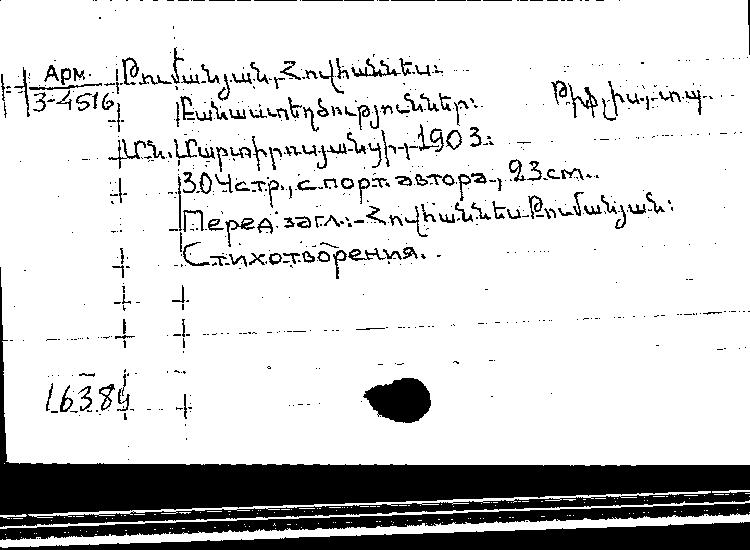 Арм.
3-4516
Թումանյան, Հովհաննես:
Բանաստեղծություններ: Թիֆլիս, տպ.
Մն. Մարտիրոսյանցի, 1903:
304 стр., с порт. автора., 23 см..
Перед загл.: Հովհաննես Թումանյան:
Стихотворения..
16384